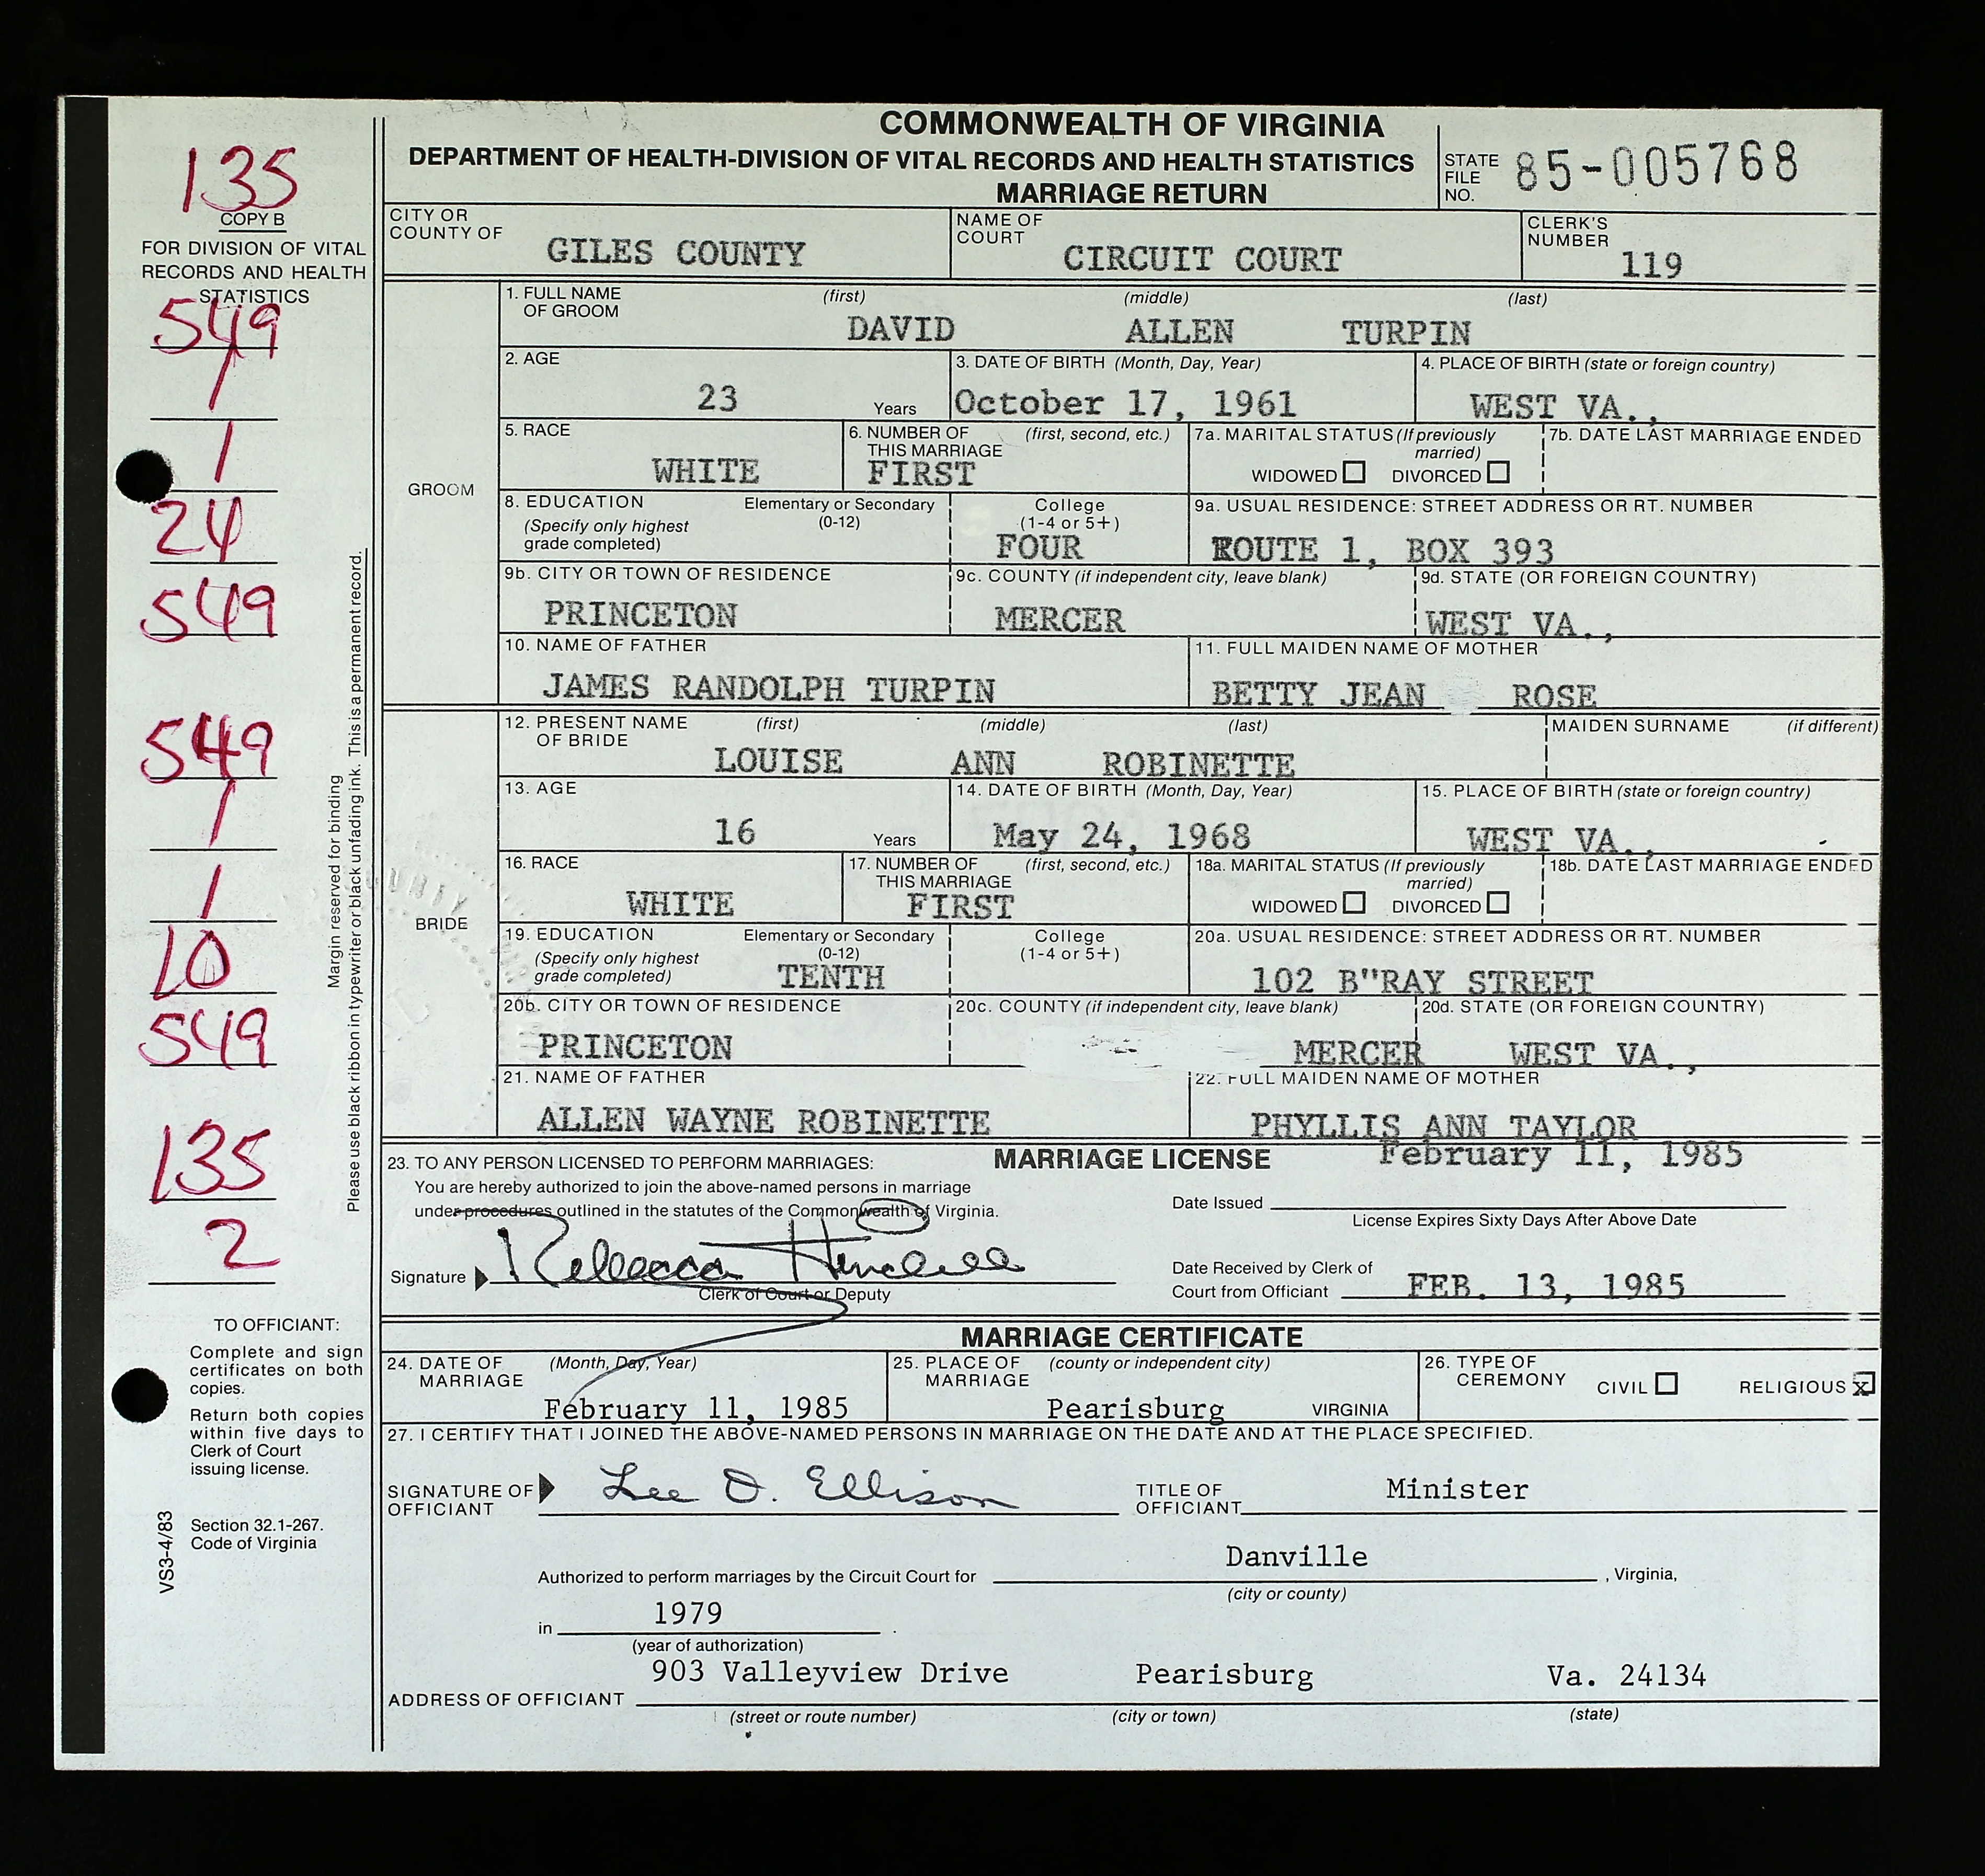 COMMONWEALTH OF VIRGINIA
DEPARTMENT OF HEALTH-DIVISION OF VITAL RECORDS AND HEALTH STATISTICS
MARRIAGE RETURN
STATE FILE NO. 85-005768
135
COPY B
FOR DIVISION OF VITAL
RECORDS AND HEALTH
STATISTICS
549
1
1
24
549
549
1
1
10
549
135
2
Margin reserved for binding
Please use black ribbon in typewriter or black unfading ink. This is a permanent record.
TO OFFICIANT:
Complete and sign
certificates on both
copies.
Return both copies
within five days to
Clerk of Court
issuing license.
Section 32.1-267.
Code of Virginia
VS3-4/83
CITY OR COUNTY OF GILES COUNTY
NAME OF COURT CIRCUIT COURT
CLERK'S NUMBER 119
GROOM
1. FULL NAME OF GROOM (first) (middle) (last)
DAVID ALLEN TURPIN
2. AGE 23 Years
3. DATE OF BIRTH (Month, Day, Year)
October 17, 1961
4. PLACE OF BIRTH (state or foreign country)
WEST VA.,
5. RACE WHITE
6. NUMBER OF THIS MARRIAGE (first, second, etc.)
FIRST
7a. MARITAL STATUS (If previously married)
WIDOWED DIVORCED
7b. DATE LAST MARRIAGE ENDED
8. EDUCATION (Specify only highest grade completed)
Elementary or Secondary (0-12)
College (1-4 or 5+)
FOUR
9a. USUAL RESIDENCE: STREET ADDRESS OR RT. NUMBER
ROUTE 1, BOX 393
9b. CITY OR TOWN OF RESIDENCE
PRINCETON
9c. COUNTY (if independent city, leave blank)
MERCER
9d. STATE (OR FOREIGN COUNTRY)
WEST VA.,
10. NAME OF FATHER
JAMES RANDOLPH TURPIN
11. FULL MAIDEN NAME OF MOTHER
BETTY JEAN ROSE
BRIDE
12. PRESENT NAME OF BRIDE (first) (middle) (last)
LOUISE ANN ROBINETTE
MAIDEN SURNAME (if different)
13. AGE 16 Years
14. DATE OF BIRTH (Month, Day, Year)
May 24, 1968
15. PLACE OF BIRTH (state or foreign country)
WEST VA.,
16. RACE WHITE
17. NUMBER OF THIS MARRIAGE (first, second, etc.)
FIRST
18a. MARITAL STATUS (If previously married)
WIDOWED DIVORCED
18b. DATE LAST MARRIAGE ENDED
19. EDUCATION (Specify only highest grade completed)
Elementary or Secondary (0-12)
TENTH
College (1-4 or 5+)
20a. USUAL RESIDENCE: STREET ADDRESS OR RT. NUMBER
102 B"RAY STREET
20b. CITY OR TOWN OF RESIDENCE
PRINCETON
20c. COUNTY (if independent city, leave blank)
MERCER
20d. STATE (OR FOREIGN COUNTRY)
WEST VA.,
21. NAME OF FATHER
ALLEN WAYNE ROBINETTE
22. FULL MAIDEN NAME OF MOTHER
PHYLLIS ANN TAYLOR
23. TO ANY PERSON LICENSED TO PERFORM MARRIAGES:
MARRIAGE LICENSE
You are hereby authorized to join the above-named persons in marriage
under procedures outlined in the statutes of the Commonwealth of Virginia.
February 11, 1985
Date Issued
License Expires Sixty Days After Above Date
Signature Rebecca
Clerk of Court or Deputy
Date Received by Clerk of
Court from Officiant FEB. 13, 1985
MARRIAGE CERTIFICATE
24. DATE OF MARRIAGE (Month, Day, Year)
February 11, 1985
25. PLACE OF MARRIAGE (county or independent city)
Pearisburg VIRGINIA
26. TYPE OF CEREMONY CIVIL RELIGIOUS X
27. I CERTIFY THAT I JOINED THE ABOVE-NAMED PERSONS IN MARRIAGE ON THE DATE AND AT THE PLACE SPECIFIED.
SIGNATURE OF OFFICIANT Lee D. Ellison
TITLE OF OFFICIANT Minister
Authorized to perform marriages by the Circuit Court for Danville , Virginia,
(city or county)
in 1979 .
(year of authorization)
903 Valleyview Drive Pearisburg Va. 24134
ADDRESS OF OFFICIANT
(street or route number) (city or town) (state)